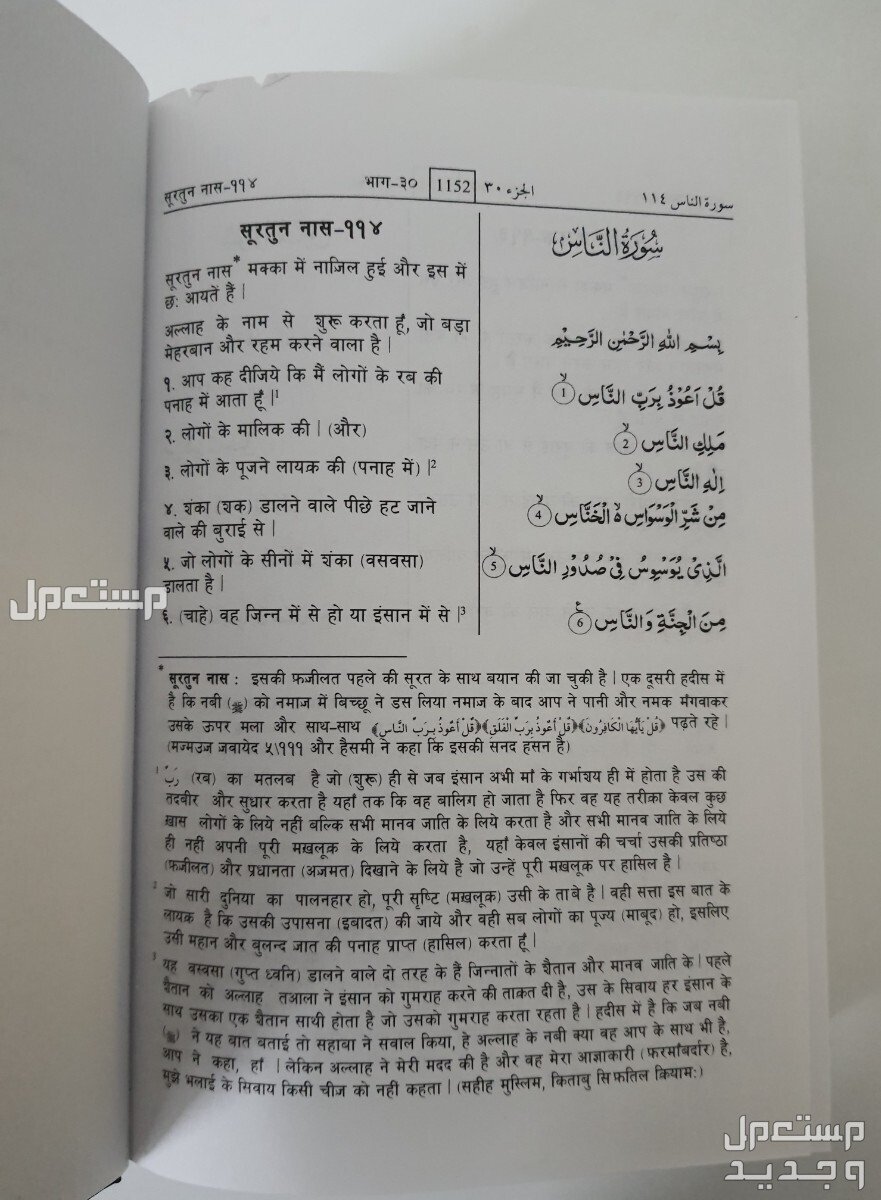 सूरतुन नास-११४ भाग-३० 1152 الجزء ٣٠ سورة الناس ١١٤
सूरतुन नास-११४
सूरतुन नास* मक्का में नाजिल हुई और इस में
छः आयतें हैं |
अल्लाह के नाम से शुरू करता हूँ, जो बड़ा
मेहरबान और रहम करने वाला है |
१. आप कह दीजिये कि मैं लोगों के रब की
पनाह में आता हूँ |¹
२. लोगों के मालिक की | (और)
३. लोगों के पूजने लायक़ की (पनाह में) |²
४. शंका (शक) डालने वाले पीछे हट जाने
वाले की बुराई से |
५. जो लोगों के सीनों में शंका (वसवसा)
डालता है |
६. (चाहे) वह जिन्न में से हो या इंसान में से |³
سُوْرَةُ النَّاسِ
بِسْمِ اللهِ الرَّحْمٰنِ الرَّحِيْمِ
قُلْ اَعُوْذُ بِرَبِّ النَّاسِ ۙ 1
مَلِكِ النَّاسِ ۙ 2
اِلٰهِ النَّاسِ ۙ 3
مِنْ شَرِّ الْوَسْوَاسِ ۙ الْخَنَّاسِ ۙ 4
الَّذِيْ يُوَسْوِسُ فِيْ صُدُوْرِ النَّاسِ ۙ 5
مِنَ الْجِنَّةِ وَالنَّاسِ ۧ 6
* सूरतुन नास : इसकी फ़जीलत पहले की सूरत के साथ बयान की जा चुकी है | एक दूसरी हदीस में
है कि नबी (ﷺ) को नमाज में बिच्छू ने डस लिया नमाज के बाद आप ने पानी और नमक मंगवाकर
उसके ऊपर मला और साथ-साथ ﴿قُلْ يٰأَيُّهَا الْكَافِرُونَ﴾ ﴿قُلْ أَعُوْذُ بِرَبِّ الْفَلَقِ﴾ ﴿قُلْ أَعُوْذُ بِرَبِّ النَّاسِ﴾ पढ़ते रहे |
(मज्मउज जवायेद ५\१११ और हैसमी ने कहा कि इसकी सनद हसन है)
¹ رَبّ (रब) का मतलब है जो (शुरू) ही से जब इंसान अभी माँ के गर्भाशय ही में होता है उस की
तदबीर और सुधार करता है यहाँ तक कि वह बालिग हो जाता है फिर वह यह तरीक़ा केवल कुछ
ख़ास लोगों के लिये नहीं बल्कि सभी मानव जाति के लिये करता है और सभी मानव जाति के लिये
ही नहीं अपनी पूरी मख़लूक़ के लिये करता है, यहाँ केवल इंसानों की चर्चा उसकी प्रतिष्ठा
(फ़जीलत) और प्रधानता (अजमत) दिखाने के लिये है जो उन्हें पूरी मख़लूक़ पर हासिल है |
² जो सारी दुनिया का पालनहार हो, पूरी सृष्टि (मख़लूक़) उसी के ताबे है | वही सत्ता इस बात के
लायक़ है कि उसकी उपासना (इबादत) की जाये और वही सब लोगों का पूज्य (माबूद) हो, इसलिए
उसी महान और बुलन्द जात की पनाह प्राप्त (हासिल) करता हूँ |
³ यह वस्वसा (गुप्त ध्वनि) डालने वाले दो तरह के हैं जिन्नातों के शैतान और मानव जाति के | पहले
शैतान को अल्लाह तआला ने इंसान को गुमराह करने की ताक़त दी है, उस के सिवाय हर इंसान के
साथ उसका एक शैतान साथी होता है जो उसको गुमराह करता रहता है | हदीस में है कि जब नबी
(ﷺ) ने यह बात बताई तो सहाबा ने सवाल किया, हे अल्लाह के नबी क्या वह आप के साथ भी है,
आप ने कहा, हाँ | लेकिन अल्लाह ने मेरी मदद की है और वह मेरा आज्ञाकारी (फ़रमाँबर्दार) है,
मुझे भलाई के सिवाय किसी चीज को नही कहता | (सहीह मुस्लिम, किताबु सिफ़तिल क़ियामः)
مستعمل وجديد
مستعمل
مستعمل
وجديد